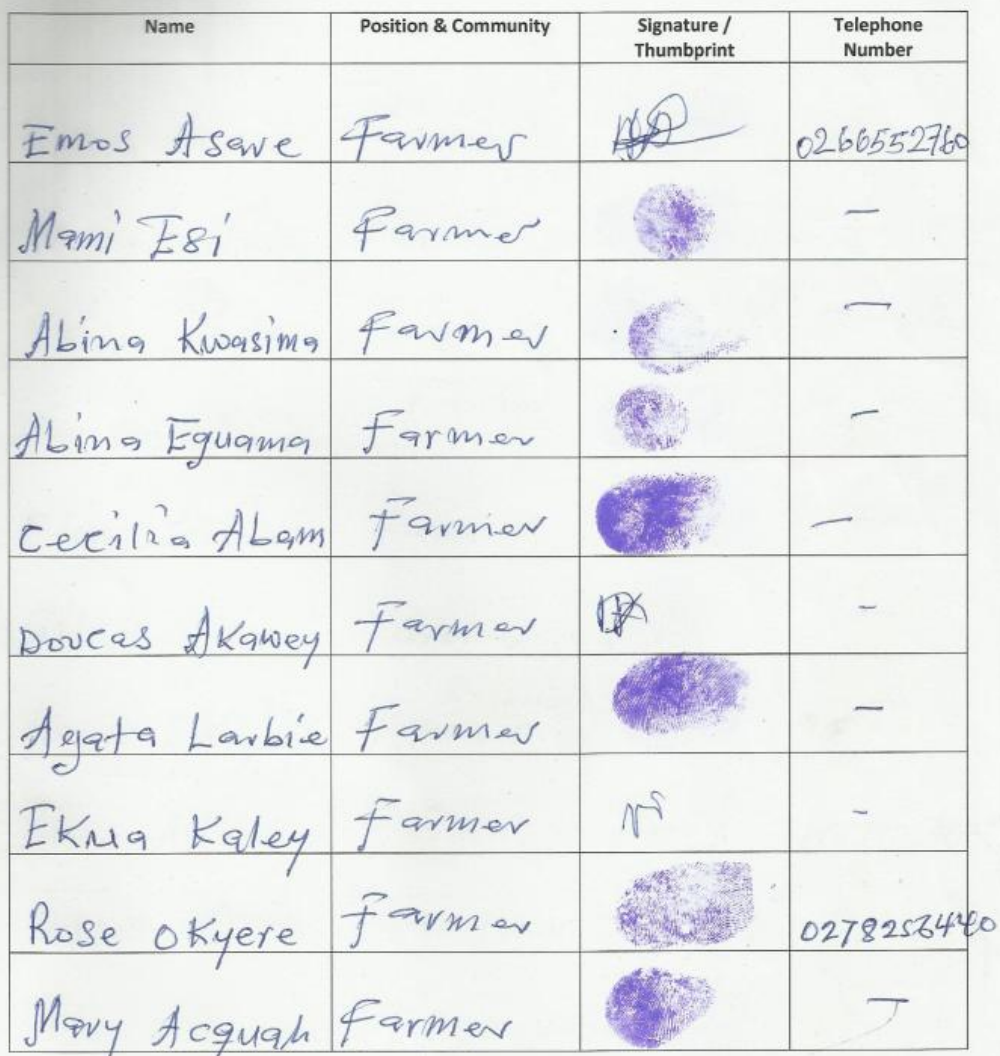 Name Position & Community Signature / Thumbprint Telephone Number
Emos Asare Farmer 0266552760
Mami Esi Farmer —
Abina Kwasima Farmer —
Abina Eguama Farmer —
Cecilia Abam Farmer —
Dorcas Akawey Farmer -
Agata Larbie Farmer —
Ekua Kaley Farmer -
Rose Okyere Farmer
Mary Acquah Farmer —